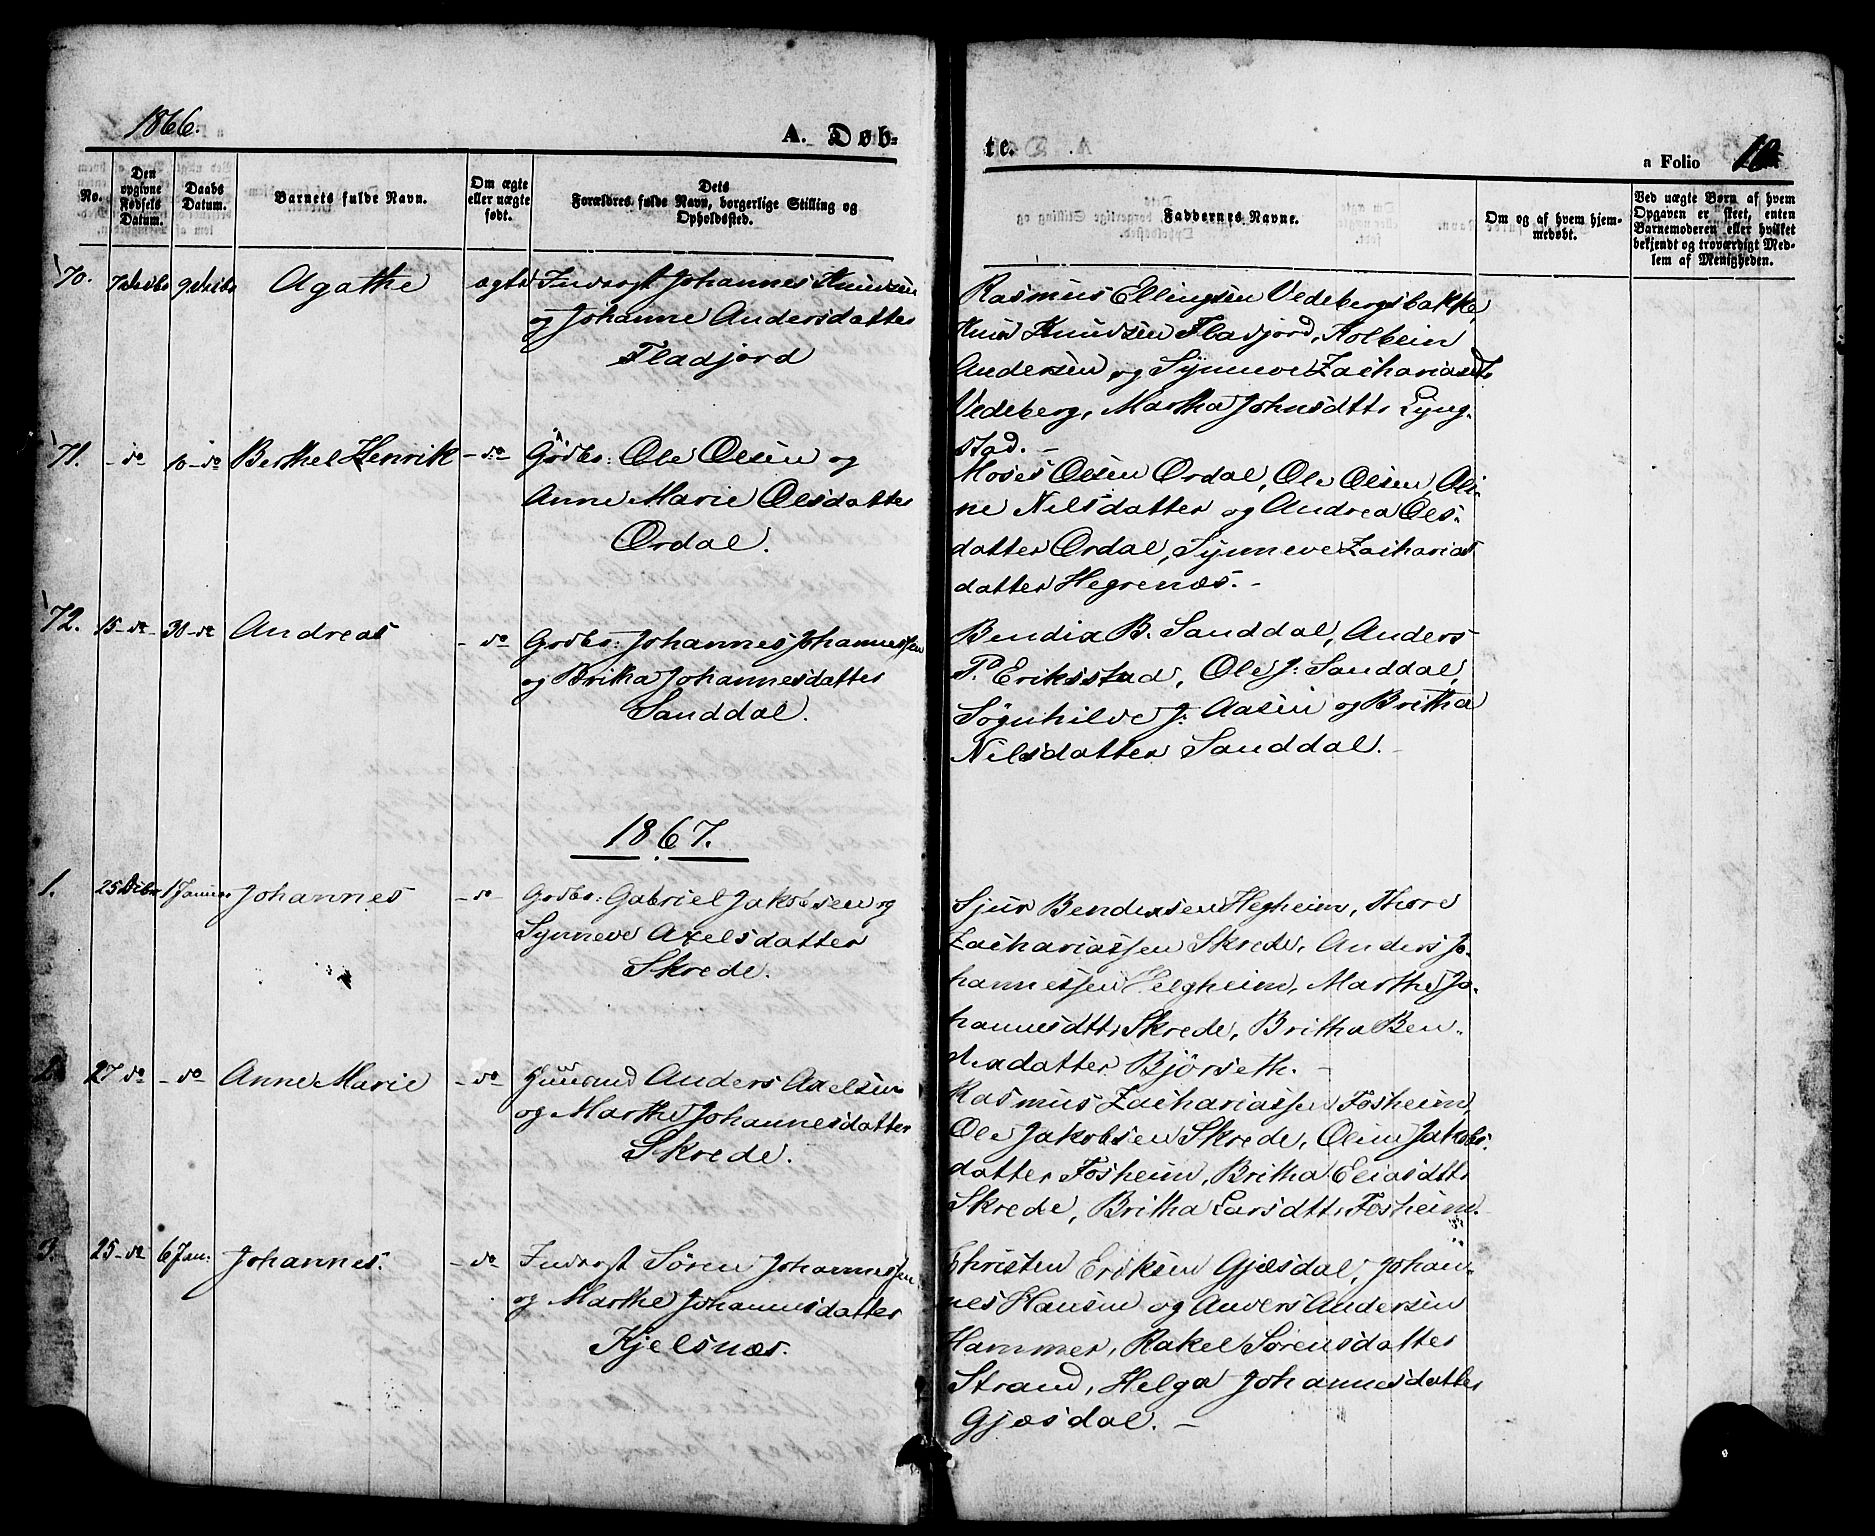 1866.
A. Døb-
te.
a Folio 10.
No.
Den opgivne Fødsels Datum.
Daabs Datum.
Barnets fulde Navn.
Om ægte eller uægte født.
Dets Forældres fulde Navn, borgerlige Stilling og Opholdssted.
Faddernes Navne.
Om og af hvem hjemmedøbt.
Ved uægte Børn af hvem
Opgaven er skeet, enten
Barnemoderen eller hvilket
bekjendt og troværdigt Med-
lem af Menigheden.
70. 7 Decbr 9 Decbr Agathe ægte Inderst Johannes Knudsen
og Johanne Andersdatter
Fladjord
Rasmus Ellingsen Vedebergsbakke,
Knud Knudsen Fladjord, Kolbein
Andersen og Synneve Zachariasdtr
Vedeberg, Martha Johnsdttr Lyng-
stad. -
71. - do 10 - do Berthel Henrik - do - Grdbr: Ole Olsen og
Anne Marie Olsdatter
Ordal.
Moses Olsen Ordal, Ole Olsen, Oli-
ne Nilsdatter og Andrea Ols-
datter Ordal, Synneve Zacharias
datter Hegrenæs. -
72. 15 - do - 30 - do Andreas - do Grdbr: Johannes Johannessen
og Britha Johannesdatter
Sanddal.
Bendix B. Sanddal, Anders
P. Eriksstad, Ole J: Sanddal,
Søgnhilde J: Aasen og Britha
Nilsdatter Sanddal. -
1867.
1. 25 Decbr 1 Januar Johannes - do - Grdbr: Gabriel Jakobsen og
Synneve Axelsdatter
Skrede.
Sjur Bendixsen Helgheim, Thore
Zachariassen Skrede, Anders Jo-
hannessen Helgheim, Marthe Jo-
hannesdttr Skrede, Britha Ben-
dixdatter Bjørseth. -
2. 27 do - do Anne Marie - do - Huusmd Anders Axelsen
og Marthe Johannesdatter
Skrede.
Rasmus Zachariassen Fosheim,
Ole Jakobsen Skrede, Oline Jakobs-
datter Fosheim, Britha Eliasdttr
Skrede, Britha Larsdttr Fosheim.
3. 25 - do 6 Jan: Johannes. - do - Inderst Søren Johannessen
og Marthe Johannesdatter
Kjelsnæs.
Christen Eriksen Gjesdal, Johan-
nes Hansen og Anders Andersen
Hammer, Rakel Sørensdatter
Strand, Helga Johannesdatter
Gjesdal. -